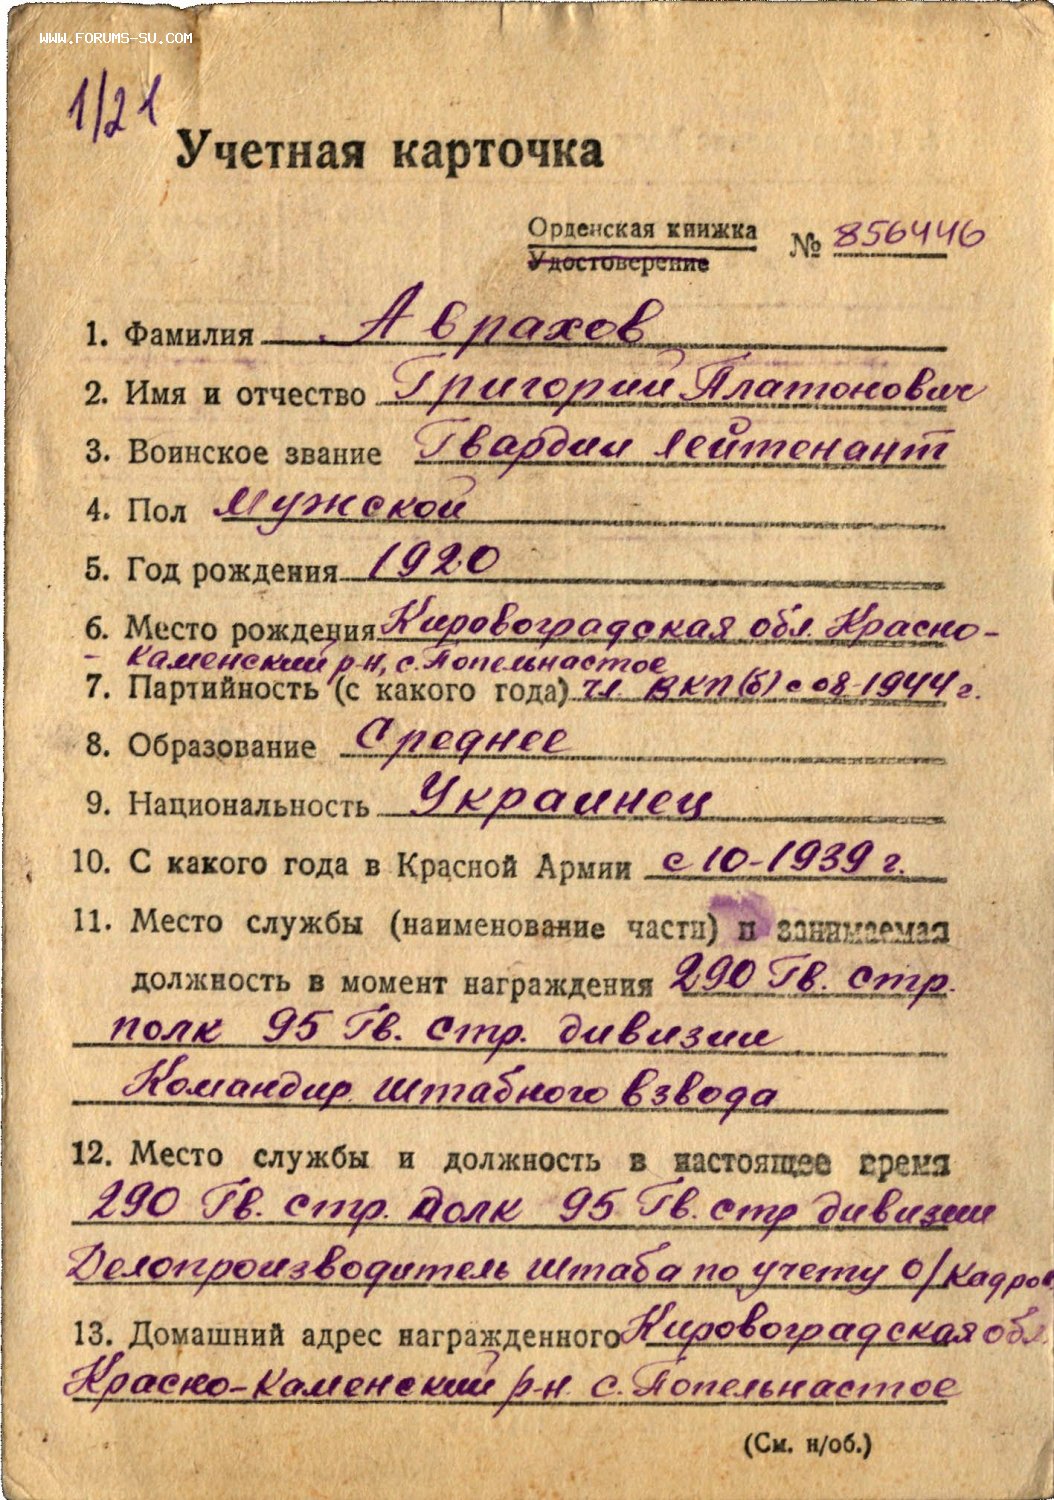 WWW.FORUMS-SU.COM
1/21
Учетная карточка
Орденская книжка
Удостоверение
№ 856446
1. Фамилия Аврахов
2. Имя и отчество Григорий Платонович
3. Воинское звание Гвардии лейтенант
4. Пол Мужской
5. Год рождения 1920
6. Место рождения Кировоградская обл. Красно-
- Каменский р-н, с. Попельнастое
7. Партийность (с какого года) чл. ВКП(б) с 08-1944 г.
8. Образование Среднее
9. Национальность Украинец
10. С какого года в Красной Армии с 10-1939 г.
11. Место службы (наименование части) и занимаемая
должность в момент награждения 290 Гв. стр.
полк 95 Гв. стр. дивизии
Командир штабного взвода
12. Место службы и должность в настоящее время
290 Гв. стр. полк 95 Гв. стр дивизии
Делопроизводитель штаба по учету о/кадров
13. Домашний адрес награжденного Кировоградская обл.
Красно-Каменский р-н. с. Попельнастое
(См. н/об.)